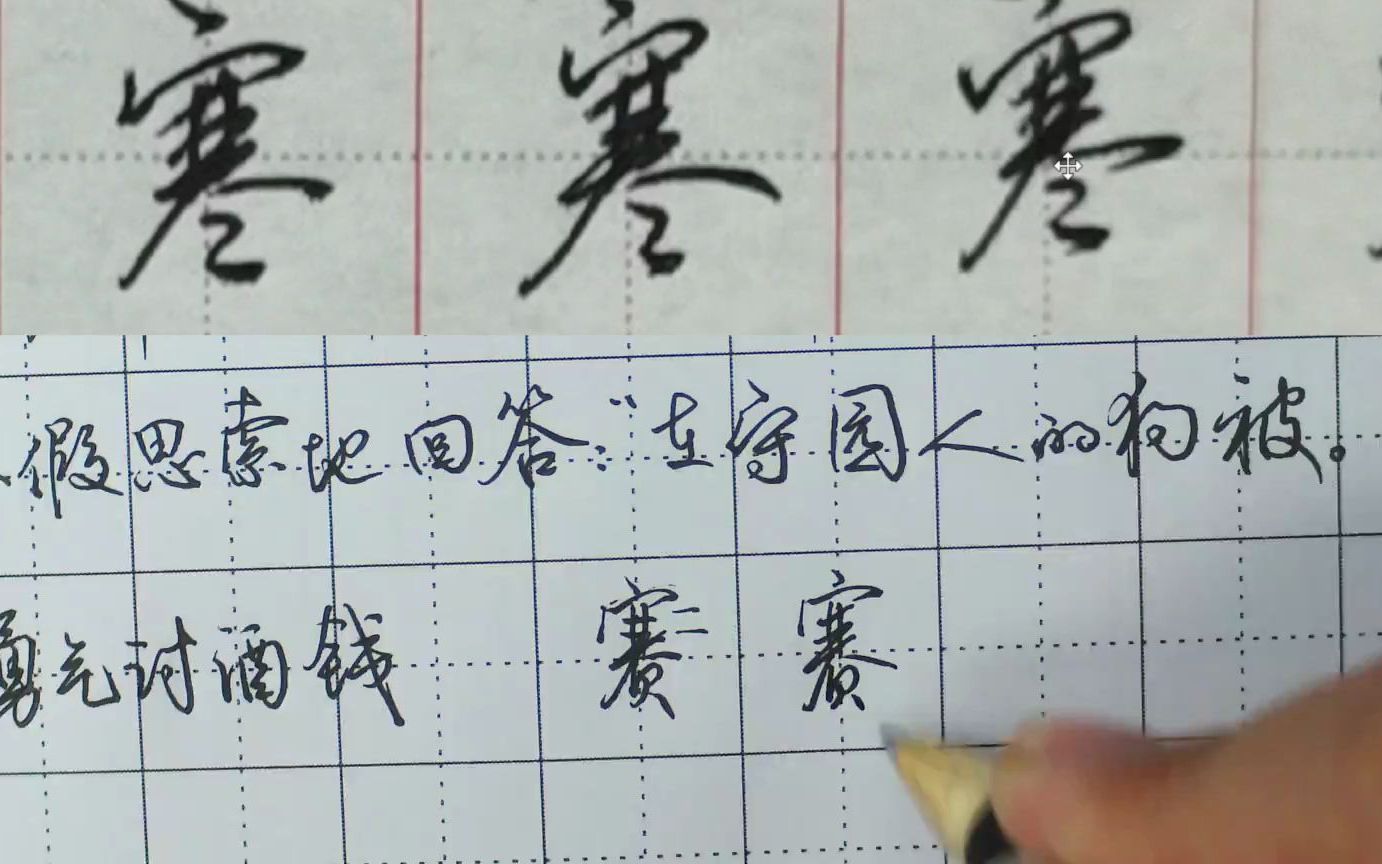 寒寒寒
假思索地回答：“在守园人的狗被。
勇气讨酒钱 赛赛